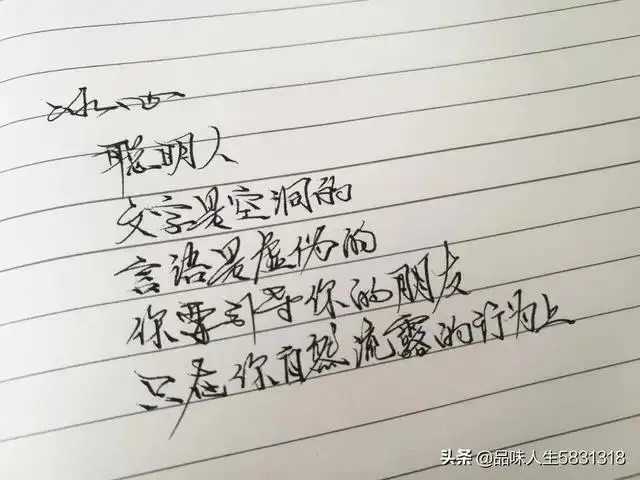 冰心
聪明人
文字是空洞的
言语是虚伪的
你要引导你的朋友
只在你自然流露的行为上
头条 @品味人生5831318